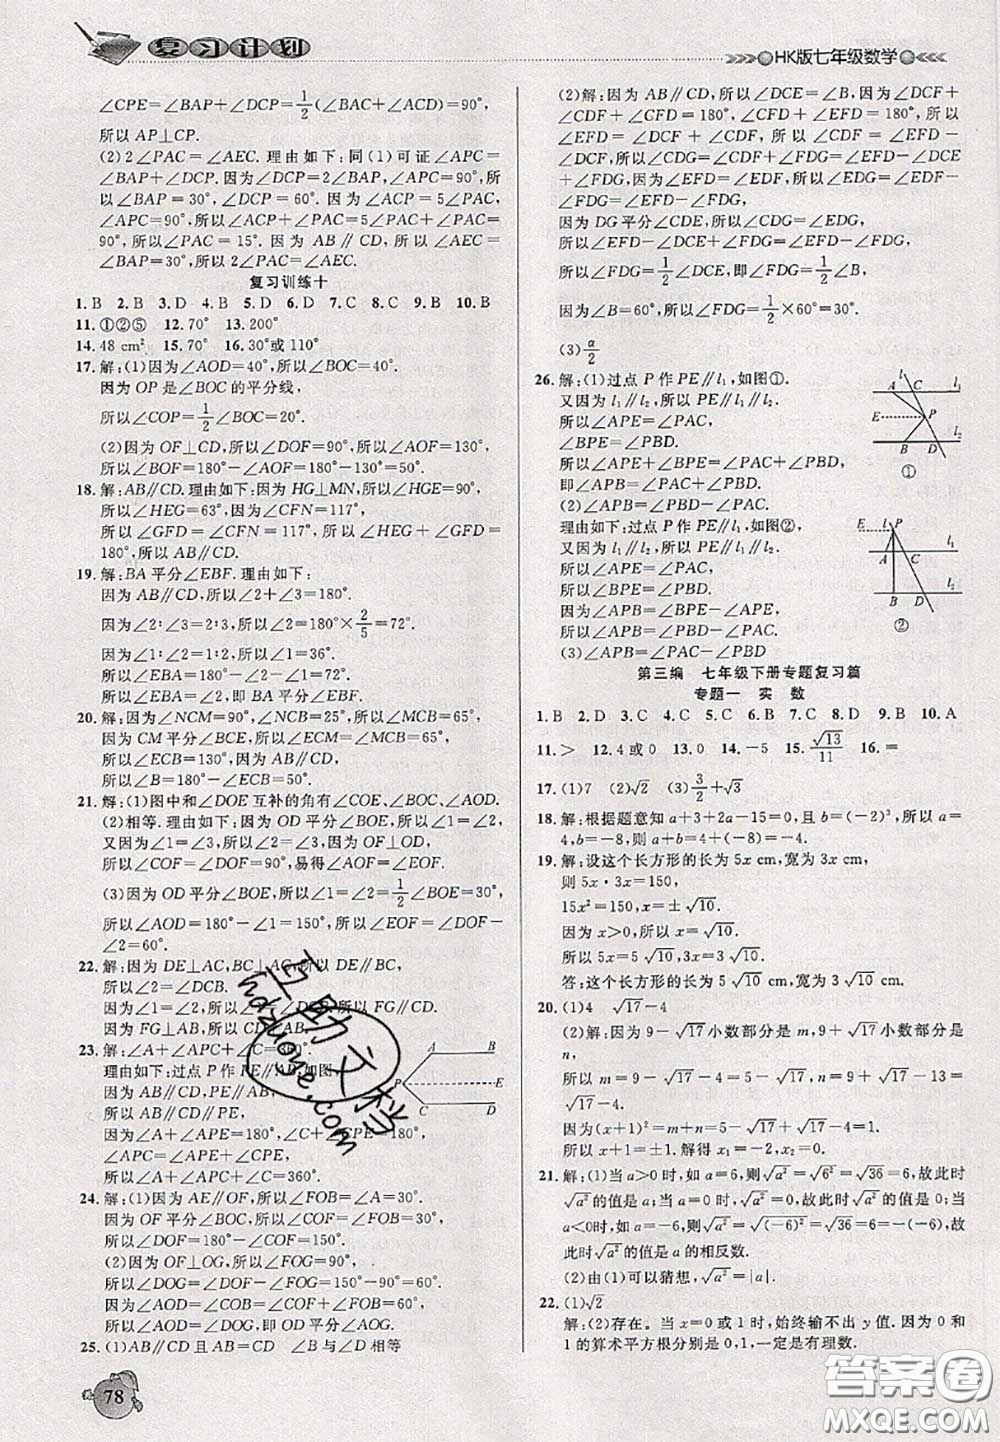 复习计划
HK版七年级数学
∠CPE=∠BAP+∠DCP=1/2(∠BAC+∠ACD)=90°,
所以 AP⊥CP.
(2)2∠PAC=∠AEC. 理由如下:同(1)可证∠APC=
∠BAP+∠DCP. 因为∠DCP=2∠BAP,∠APC=90°,所
以∠BAP=30°,∠DCP=60°. 因为∠ACP=5∠PAC,
∠APC=90°,所以∠ACP+∠PAC=5∠PAC+∠PAC=
90°,所以∠PAC=15°. 因为 AB∥CD,所以∠AEC=
∠BAP=30°,所以 2∠PAC=∠AEC.
复习训练十
1. B 2. B 3. D 4. B 5. D 6. D 7. C 8. C 9. B 10. B
11. ①②⑤ 12. 70° 13. 200°
14. 48 cm² 15. 70° 16. 30°或 110°
17. 解:(1)因为∠AOD=40°,所以∠BOC=40°.
因为 OP 是∠BOC 的平分线,
所以∠COP=1/2∠BOC=20°.
(2)因为 OF⊥CD,所以∠DOF=90°,所以∠AOF=130°,
所以∠BOF=180°-∠AOF=180°-130°=50°.
18. 解:AB∥CD. 理由如下:因为 HG⊥MN,所以∠HGE=90°,
所以∠HEG=63°,因为∠CFN=117°,
所以∠GFD=∠CFN=117°,所以∠HEG+∠GFD=
180°,所以 AB∥CD.
19. 解:BA 平分∠EBF. 理由如下:
因为 AB∥CD,所以∠2+∠3=180°.
因为∠2∶∠3=2∶3,所以∠2=180°×2/5=72°.
因为∠1∶∠2=1∶2,所以∠1=36°.
所以∠EBA=180°-∠2-∠1=72°,
所以∠EBA=∠2,即 BA 平分∠EBF.
20. 解:因为∠NCM=90°,∠NCB=25°,所以∠MCB=65°,
因为 CM 平分∠BCE,所以∠MCE=∠MCB=65°,
所以∠ECB=130°,因为 AB∥CD,
所以∠B=180°-∠ECB=50°
21. 解:(1)图中和∠DOE 互补的角有∠COE、∠BOC、∠AOD.
(2)相等. 理由如下:因为 OD 平分∠BOE,所以∠1=∠2,
又因为∠1=∠3,所以∠2=∠3,因为 OF⊥OD,
所以∠COF=∠DOF=90°,易得∠AOF=∠EOF.
(3)因为 OD 平分∠BOE,所以∠1=∠2=1/2∠BOE=30°,
所以∠AOD=180°-∠1=150°,所以∠EOF=∠DOF-
∠2=60°.
22. 解:因为 DE⊥AC,BC⊥AC,所以 DE∥BC,
所以∠2=∠DCB.
因为∠1=∠2,所以∠1=∠DCB,所以 FG∥CD.
因为 FG⊥AB,所以 CD⊥AB.
23. 解:∠A+∠APC+∠C=360°.
理由如下:过点 P 作 PE∥AB,如图,
因为 AB∥CD,PE∥AB,
所以 AB∥CD∥PE,
所以∠A+∠APE=180°,∠C+∠CPE=180°,
∠APC=∠APE+∠CPE,
所以∠A+∠APC+∠C=360°.
A B
P E
C D
24. 解:(1)因为 AE∥OF,所以∠FOB=∠A=30°,
因为 OF 平分∠BOC,所以∠COF=∠FOB=30°,
所以∠DOF=180°-∠COF=150°.
(2)因为 OF⊥OG,所以∠FOG=90°,
所以∠DOG=∠DOF-∠FOG=150°-90°=60°,
因为∠AOD=∠COB=∠COF+∠FOB=60°,
所以∠AOD=∠DOG,所以 OD 平分∠AOG.
25. (1)AB∥CD 且 AB=CD ∠B 与∠D 相等
78
(2)解:因为 AB∥CD,所以∠DCE=∠B,因为∠DCF+
∠CDF+∠CFD=180°,∠CFD+∠EFD=180°,所以
∠EFD=∠DCF+∠CDF,所以∠CDF=∠EFD-
∠DCF,所以∠CDG=∠CDF+∠FDG=∠EFD-∠DCE
+∠FDG,因为∠EFD=∠EDF,所以∠EDG=∠EDF-
∠FDG=∠EFD-∠FDG,
因为 DG 平分∠CDE,所以∠CDG=∠EDG,
所以∠EFD-∠DCE+∠FDG=∠EFD-∠FDG,
所以∠FDG=1/2∠DCE,即∠FDG=1/2∠B,
因为∠B=60°,所以∠FDG=1/2×60°=30°.
(3)α/2
26. 解:(1)过点 P 作 PE∥l₁,如图①.
又因为 l₁∥l₂,所以 PE∥l₁∥l₂.
所以∠APE=∠PAC,
∠BPE=∠PBD.
所以∠APE+∠BPE=∠PAC+∠PBD,
即∠APB=∠PAC+∠PBD.
(2)∠APB=∠PAC-∠PBD.
理由如下:过点 P 作 PE∥l₁,如图②,
又因为 l₁∥l₂,所以 PE∥l₁∥l₂,
所以∠APE=∠PAC,
所以∠BPE=∠PBD,
因为∠APB=∠BPE-∠APE,
所以∠APB=∠PBD-∠PAC.
(3)∠APB=∠PAC-∠PBD
l₃
A C l₁
E P
B D l₂
①
E l₃ P
A C l₁
B D l₂
②
第三编 七年级下册专题复习篇
专题一 实 数
1. B 2. D 3. C 4. C 5. C 6. B 7. B 8. D 9. B 10. A
11. > 12. 4 或 0 13. 0 14. -5 15. √13/11 16. =
17. (1)7 (2)√2 (3)3/2+√3
18. 解:根据题意知 a+3+2a-15=0,且 b=(-2)³,所以 a=
4,b=-8,则 a+b=4+(-8)=-4.
19. 解:设这个长方形的长为 5x cm,宽为 3x cm,
则 5x·3x=150,
15x²=150,x=±√10.
因为 x>0,所以 x=√10.
所以 5x=5√10,3x=3√10.
答:这个长方形的长为 5√10 cm,宽为 3√10 cm.
20. (1)4 √17-4
(2)解:因为 9-√17小数部分是 m,9+√17小数部分是
n,
所以 m=9-√17-4=5-√17,n=9+√17-13=
√17-4,
因为(x+1)²=m+n=5-√17+√17-4=1,
所以 x+1=±1. 解得 x₁=-2,x₂=0.
21. 解:(1)当 a>0 时,如 a=6,则√a²=√6²=√36=6,故此时
√a²的值是 a;当 a=0 时,√a²=0,故此时√a²的值是 0;当
a<0时,如 a=-6,则√a²=√(-6)²=√36=6=-(-6),故
此时√a²的值是 a 的相反数.
(2)由(1)可以猜想,√a²=|a|.
22. (1)√2
(2)解:存在。当 x=0 或 1 时,始终输不出 y 值. 因为 0 和
1 的算术平方根分别是 0,1,一定是有理数.
互助文档
hdzuoye.com
答案圈
MXQE.COM